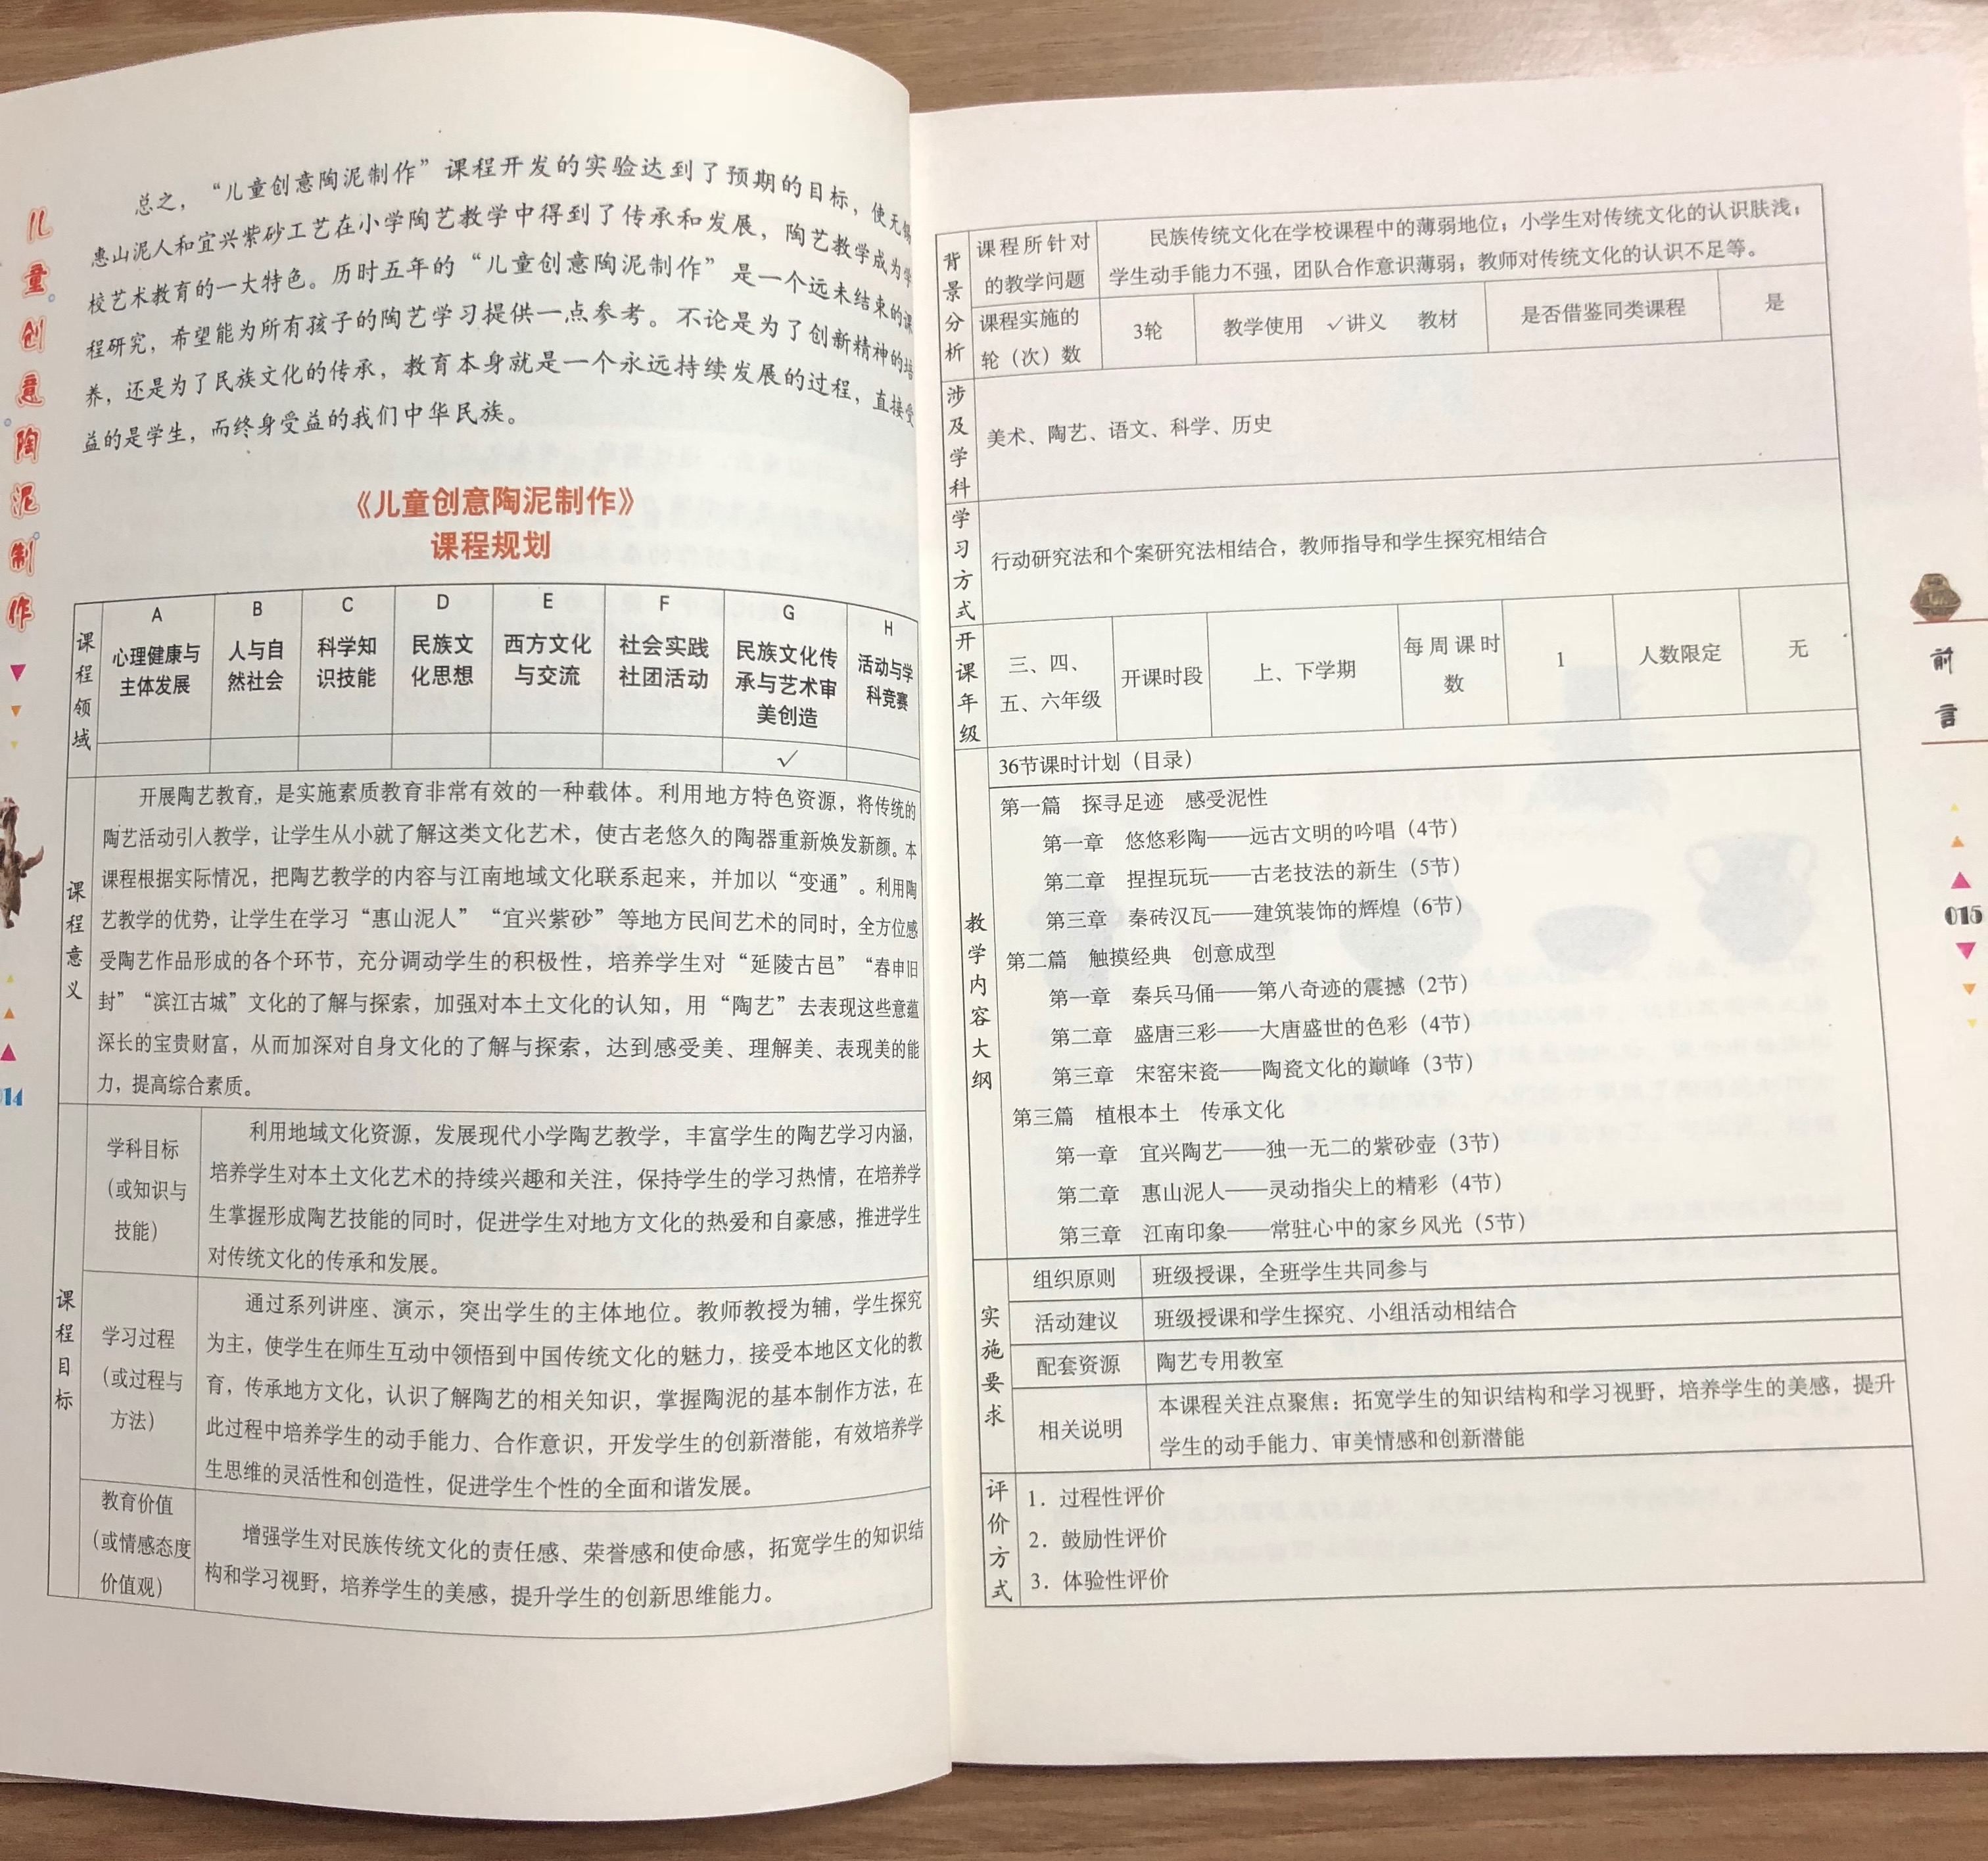 儿童创意陶泥制作
总之，“儿童创意陶泥制作”课程开发的实验达到了预期的目标，使无锡
惠山泥人和宜兴紫砂工艺在小学陶艺教学中得到了传承和发展，陶艺教学成为学
校艺术教育的一大特色。历时五年的“儿童创意陶泥制作”是一个远未结束的课
程研究，希望能为所有孩子的陶艺学习提供一点参考。不论是为了创新精神的培
养，还是为了民族文化的传承，教育本身就是一个永远持续发展的过程，直接受
益的是学生，而终身受益的我们中华民族。
《儿童创意陶泥制作》
课程规划
课程领域
A
心理健康与
主体发展
B
人与自
然社会
C
科学知
识技能
D
民族文
化思想
E
西方文化
与交流
F
社会实践
社团活动
G
民族文化传
承与艺术审
美创造
H
活动与学
科竞赛
✓
课程意义
开展陶艺教育，是实施素质教育非常有效的一种载体。利用地方特色资源，将传统的
陶艺活动引入教学，让学生从小就了解这类文化艺术，使古老悠久的陶器重新焕发新颜。本
课程根据实际情况，把陶艺教学的内容与江南地域文化联系起来，并加以“变通”。利用陶
艺教学的优势，让学生在学习“惠山泥人”“宜兴紫砂”等地方民间艺术的同时，全方位感
受陶艺作品形成的各个环节，充分调动学生的积极性，培养学生对“延陵古邑”“春申旧
封”“滨江古城”文化的了解与探索，加强对本土文化的认知，用“陶艺”去表现这些意蕴
深长的宝贵财富，从而加深对自身文化的了解与探索，达到感受美、理解美、表现美的能
力，提高综合素质。
课程目标
学科目标
（或知识与
技能）
利用地域文化资源，发展现代小学陶艺教学，丰富学生的陶艺学习内涵，
培养学生对本土文化艺术的持续兴趣和关注，保持学生的学习热情，在培养学
生掌握形成陶艺技能的同时，促进学生对地方文化的热爱和自豪感，推进学生
对传统文化的传承和发展。
学习过程
（或过程与
方法）
通过系列讲座、演示，突出学生的主体地位。教师教授为辅，学生探究
为主，使学生在师生互动中领悟到中国传统文化的魅力，接受本地区文化的教
育，传承地方文化，认识了解陶艺的相关知识，掌握陶泥的基本制作方法，在
此过程中培养学生的动手能力、合作意识，开发学生的创新潜能，有效培养学
生思维的灵活性和创造性，促进学生个性的全面和谐发展。
教育价值
（或情感态度
价值观）
增强学生对民族传统文化的责任感、荣誉感和使命感，拓宽学生的知识结
构和学习视野，培养学生的美感，提升学生的创新思维能力。
014
背景分析
课程所针对
的教学问题
民族传统文化在学校课程中的薄弱地位；小学生对传统文化的认识肤浅；
学生动手能力不强，团队合作意识薄弱；教师对传统文化的认识不足等。
课程实施的
轮（次）数
3轮
教学使用 ✓讲义 教材
是否借鉴同类课程
是
涉及学科
美术、陶艺、语文、科学、历史
学习方式
行动研究法和个案研究法相结合，教师指导和学生探究相结合
开课年级
三、四、
五、六年级
开课时段
上、下学期
每周课时
数
1
人数限定
无
教学内容大纲
36节课时计划（目录）
第一篇 探寻足迹 感受泥性
第一章 悠悠彩陶——远古文明的吟唱（4节）
第二章 捏捏玩玩——古老技法的新生（5节）
第三章 秦砖汉瓦——建筑装饰的辉煌（6节）
第二篇 触摸经典 创意成型
第一章 秦兵马俑——第八奇迹的震撼（2节）
第二章 盛唐三彩——大唐盛世的色彩（4节）
第三章 宋窑宋瓷——陶瓷文化的巅峰（3节）
第三篇 植根本土 传承文化
第一章 宜兴陶艺——独一无二的紫砂壶（3节）
第二章 惠山泥人——灵动指尖上的精彩（4节）
第三章 江南印象——常驻心中的家乡风光（5节）
实施要求
组织原则
班级授课，全班学生共同参与
活动建议
班级授课和学生探究、小组活动相结合
配套资源
陶艺专用教室
相关说明
本课程关注点聚焦：拓宽学生的知识结构和学习视野，培养学生的美感，提升
学生的动手能力、审美情感和创新潜能
评价方式
1. 过程性评价
2. 鼓励性评价
3. 体验性评价
前言
015